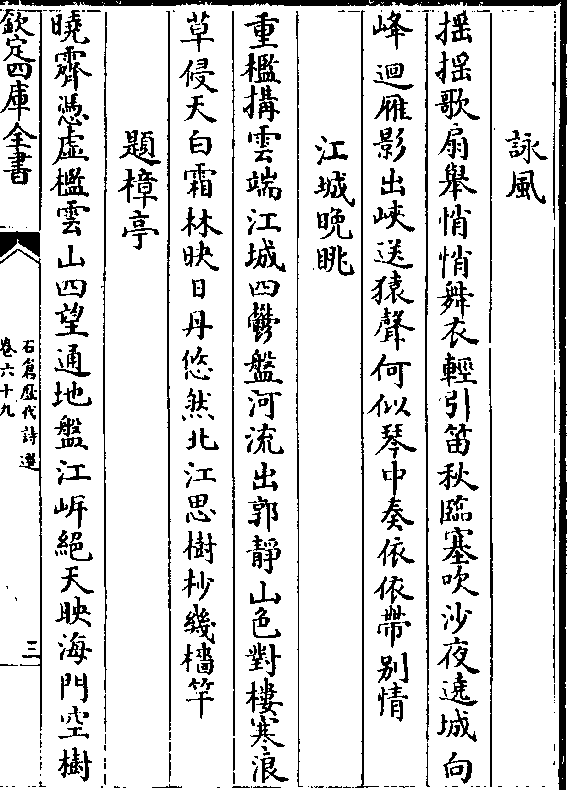 詠風
揺揺歌扇舉悄悄舞衣輕引笛秋臨塞吹沙夜遶城向
峰迴雁影出峽送猿聲何似琴中奏依依帶别情
江城晚眺
重檻搆雲端江城四鬱盤河流出郭靜山色對樓寒浪
草侵天白霜林映日丹悠然北江思樹杪幾檣竿
題樟亭
曉霽憑虛檻雲山四望通地盤江岍絕天映海門空樹
欽定四庫全書
石倉歷代詩選
卷六十九
三